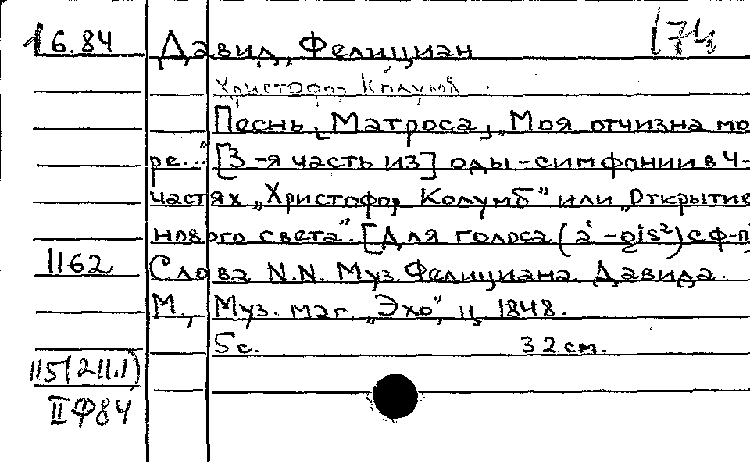 16.84 Давид, Фелициан 174
Христофор Колумб
Песнь [Матроса] „Моя отчизна мо-
ре..." [3-я часть из] оды-симфонии в 4-
частях „Христофор Колумб" или „Открытие
нового света". [Для голоса (a¹-gis²) с ф-п]
1162 Слова N.N. Муз. Фелициана Давида.
М., Муз. маг. „Эхо", ц. 1848.
5 с. 32 см.
115(211.1)
II Ф84